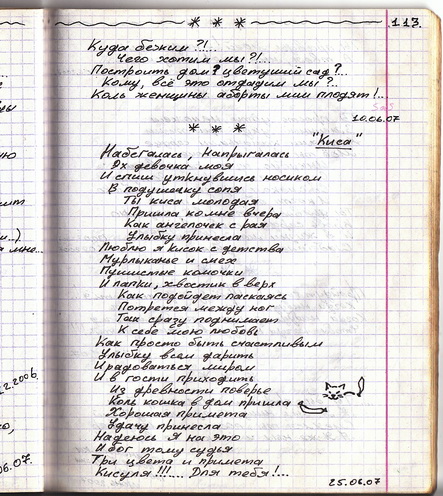 * * *
113.
Куда бежим ?!..
Чего хотим мы ?!..
Построить дом? цветущий сад?..
Кому, всё это отдадим мы ?..
Коль женщины аборты лиш плодят!..
10.06.07
* * *
"Киса"
Набегалась, напрыгалась
Эх девочка моя
И спиш уткнувшись носиком
В подушечку сопя
Ты киса молодая
Пришла ко мне вчера
Как ангелочек с рая
Улыбку принесла
Люблю я кисок с детства
Мурлыканье и смех
Пушистые комочки
И лапки, хвостик в верх
Как подойдет ласкаясь
Потрется между ног
Так сразу поднимает
К себе мою любовь
Как просто быть счастливым
Улыбку всем дарить
И радоваться миром
И в гости приходить
Из древности поверье
Коль кошка в дом пришла
Хорошая примета
Удачу принесла
Надеюсь я на это
И бог тому судья
Три цвета и примета
Кисуля !!!... Для тебя!...
25.06.07
2.2006.
06.07.